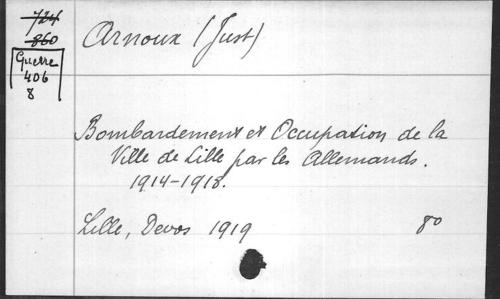 724
860
Guerre
406
8
Arnoux (Just)
Bombardement et Occupation de la
Ville de Lille par les Allemands.
1914-1918.
Lille, Devos 1919 8o